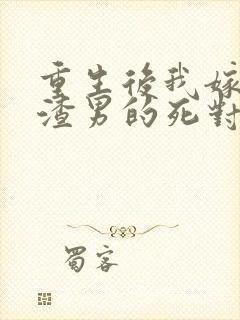 重生後我嫁
渣男的死對
蜀客